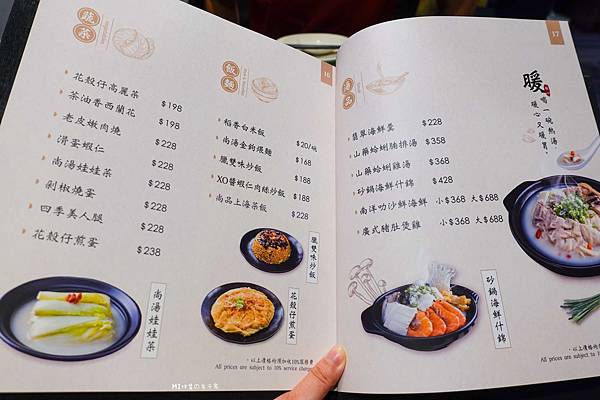 蔬菜
花殼仔高麗菜 $198
茶油香西蘭花 $198
老皮嫩肉燒 $228
滑蛋蝦仁 $228
尚湯娃娃菜 $228
剁椒燒蛋 $228
四季美人腿 $228
花殼仔煎蛋 $238
尚湯娃娃菜
飯麵
16
稻香白米飯 $20/碗
尚湯金鈎煨麵 $168
臘雙味炒飯 $188
XO醬蝦仁肉絲炒飯 $188
尚品上海菜飯 $228
臘雙味炒飯
花殼仔煎蛋
・以上價格均須加收10%服務費
All prices are subject to 10% service charge
湯品
翡翠海鮮羹 $228
山藥蛤蜊腩排湯 $358
山藥蛤蜊雞湯 $368
砂鍋海鮮什錦 $428
南洋叻沙鮮海鮮 小$368 大$688
廣式豬肚煲雞 小$368 大$688
17
暖
嚐一碗熱湯
暖心又暖胃。
砂鍋海鮮什錦
・以上價格均須加收10%
All prices are subject to 10%